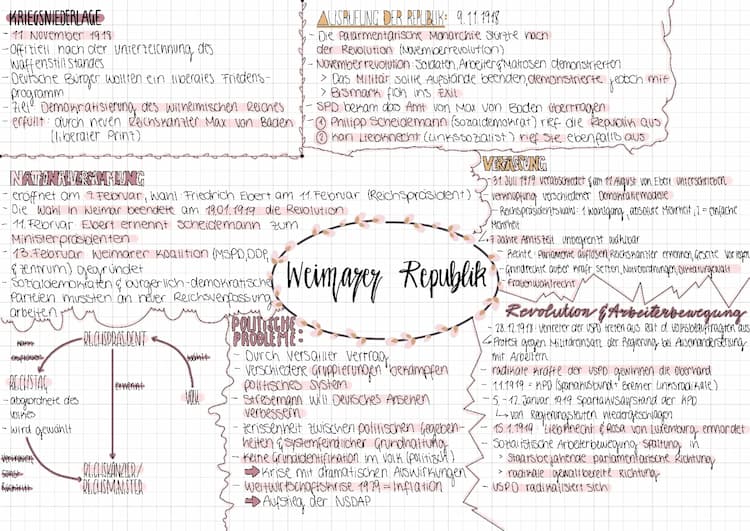 KRIEGSNIEDERLAGE
- 11 November 1918
- Offiziell nach der Unterzeichnung des
Waffenstillstandes
- Deutsche Bürger wollten ein liberales Friedens-
programm
- Ziel: Demokratisierung des wilhelmischen Reiches
- erfüllt: durch neuen Reichskanzler Max von Baden
(liberaler Prinz)
AUSRUFUNG DER REPUBLIK: 9.11.1918
- Die Parlamentarische Monarchie stürzte nach
der Revolution (Novemberrevolution)
- Novemberrevolution: Soldaten, Arbeiter & Matrosen demonstrierten
> Das Militär sollte Aufstände beenden, demonstrierte jedoch mit
> Bismark floh ins Exil
- SPD bekam das Amt von Max von Baden übertragen
1 Philipp Scheidemann (Sozialdemokrat) rief die Republik aus
2 Karl Liebknecht (Linkssozialist) rief sie ebenfalls aus
NATIONALVERSAMMLUNG
- eröffnet am 9. Februar, Wahl Friedrich Ebert am 11. Februar (Reichspräsident)
- Die Wahl in Weimar beendete am 19.01.1919 die Revolution
- 11. Februar Ebert ernennt Scheidemann zum
Ministerpräsidenten
- 13. Februar Weimarer Koalition (MSPD, DDP
& Zentrum) gegründet
- Sozialdemokraten & bürgerlich-demokratische
Parteien mussten an neuer Reichsverfassung
arbeiten
VERFASSUNG
- 31. Juli 1919 verabschiedet & am 11. August von Ebert unterschrieben
- Verknüpfung verschiedener Demokratiemodelle
- Reichspräsidentswahl: 1 Wahlgang, absolute Mehrheit, 2 = einfache
Mehrheit
7 Jahre Amtszeit unbegrenzt wählbar
- Rechte: Parlamente auflösen, Reichskanzler ernennen, Gesetze vorlegen
- Grundrechte außer Kraft setzen, Notverordnungen,
- Frauenwahlrecht
Weimarer Republik
REICHSPRÄSIDENT
ernennt
wählt
VOLK
REICHSTAG
- abgeordnete des
Volkes
- wird gewählt
REICHSKANZLER/
REICHSMINISTER
POLITISCHE
PROBLEME:
- Durch Versailler Vertrag
- Verschiedene Gruppierungen bekämpfen
politisches System
- Stresemann will Deutsches Ansehen
verbessern
- Zerissenheit zwischen politischen Gegeben-
heiten & systemfeindlicher Grundhaltung
- Keine Grundidentifikation im Volk (politisch)
➡ Krise mit dramatischen Auswirkungen
- Weltwirtschaftskrise 1929 = Inflation
➡ Aufstieg der NSDAP
Revolution & Arbeiterbewegung
- 28.12.1918: Vertreter der USPD treten aus Rat d. Volksbeauftragten aus
↳ Protest gegen Militäreinsatz der Regierung bei Auseinandersetzung
mit Arbeitern
- radikale Kräfte der USPD gewinnen die Oberhand
- 1.1.1919 = KPD (Spartakusbund + Bremer Linksradikale)
- 5. - 12. Januar 1919 Spartakusaufstand der KPD
↳ von Regierungstruppen niedergeschlagen
- 15.1.1919 Liebknecht & Rosa von Luxemburg ermordet
- Sozialistische Arbeiterbewegung spaltung in
> Staatsbejahende parlamentarische Richtung
> radikale, gewaltbereite Richtung
- USPD radikalisiert sich